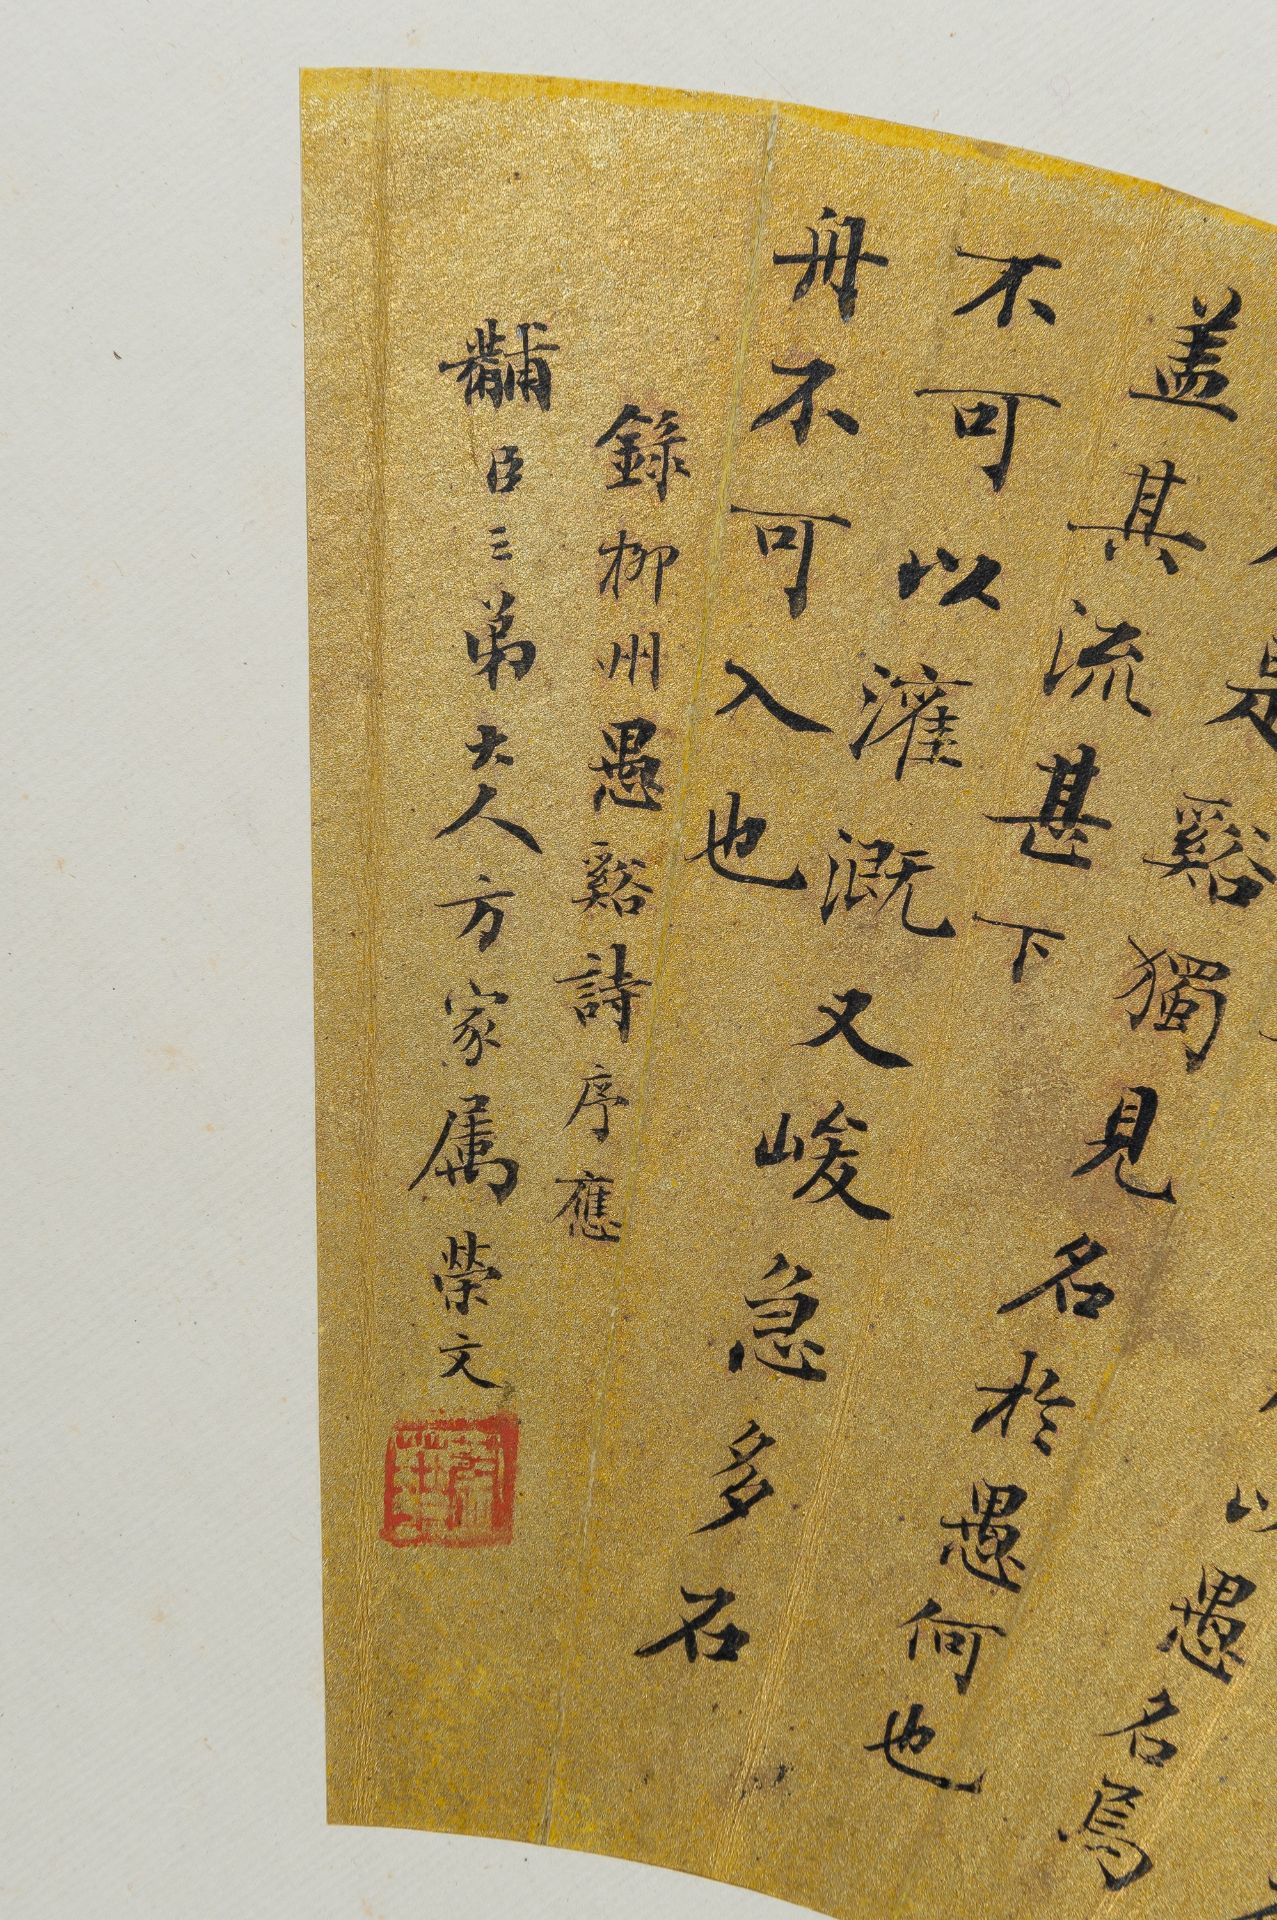 以愚名焉
是谿獨見名於愚何也
盖其流甚下
不可以灌溉又峻急多石
舟不可入也
錄柳州愚谿詩序應
黼臣三弟大人方家属榮文